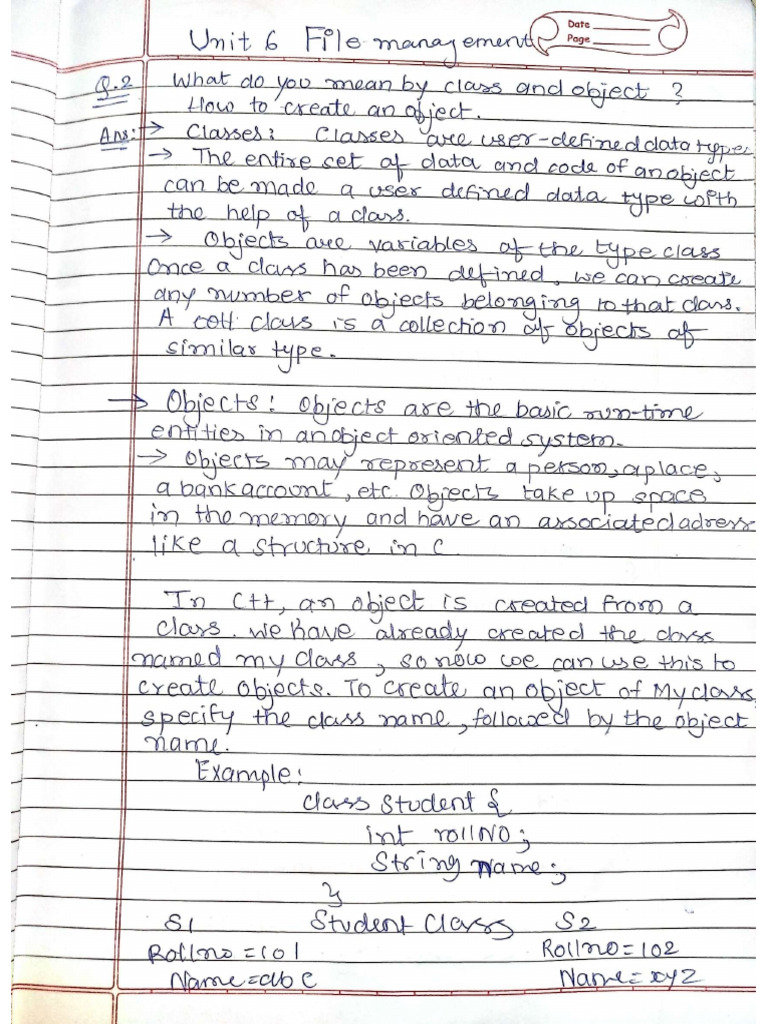 Date
Page
Unit 6 File management
Q.2 What do you mean by class and object ?
How to create an object.
Ans:→ Classes: Classes are user-defined data types
→ The entire set of data and code of an object
can be made a user defined data type with
the help of a class.
→ Objects are variables of the type class
Once a class has been defined, we can create
any number of objects belonging to that class.
A class is a collection of objects of
similar type.
→ Objects: Objects are the basic run-time
entities in an object oriented system.
→ Objects may represent a person, a place,
a bank account, etc. Objects take up space
in the memory and have an associated adress
like a structure in C
In C++, an object is created from a
class. We have already created the class
named my class, so now we can use this to
create objects. To create an object of Myclass,
specify the class name, followed by the object
name.
Example:
Class Student {
int rollNO;
String Name;
}
S1 Student Class S2
Rollno=101 Rollno=102
Name=abc Name=xyz